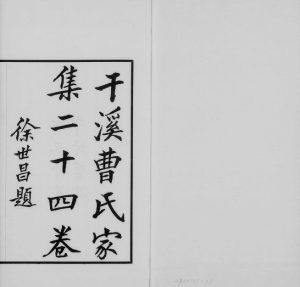 干溪曹氏家
集二十四卷
徐世昌題